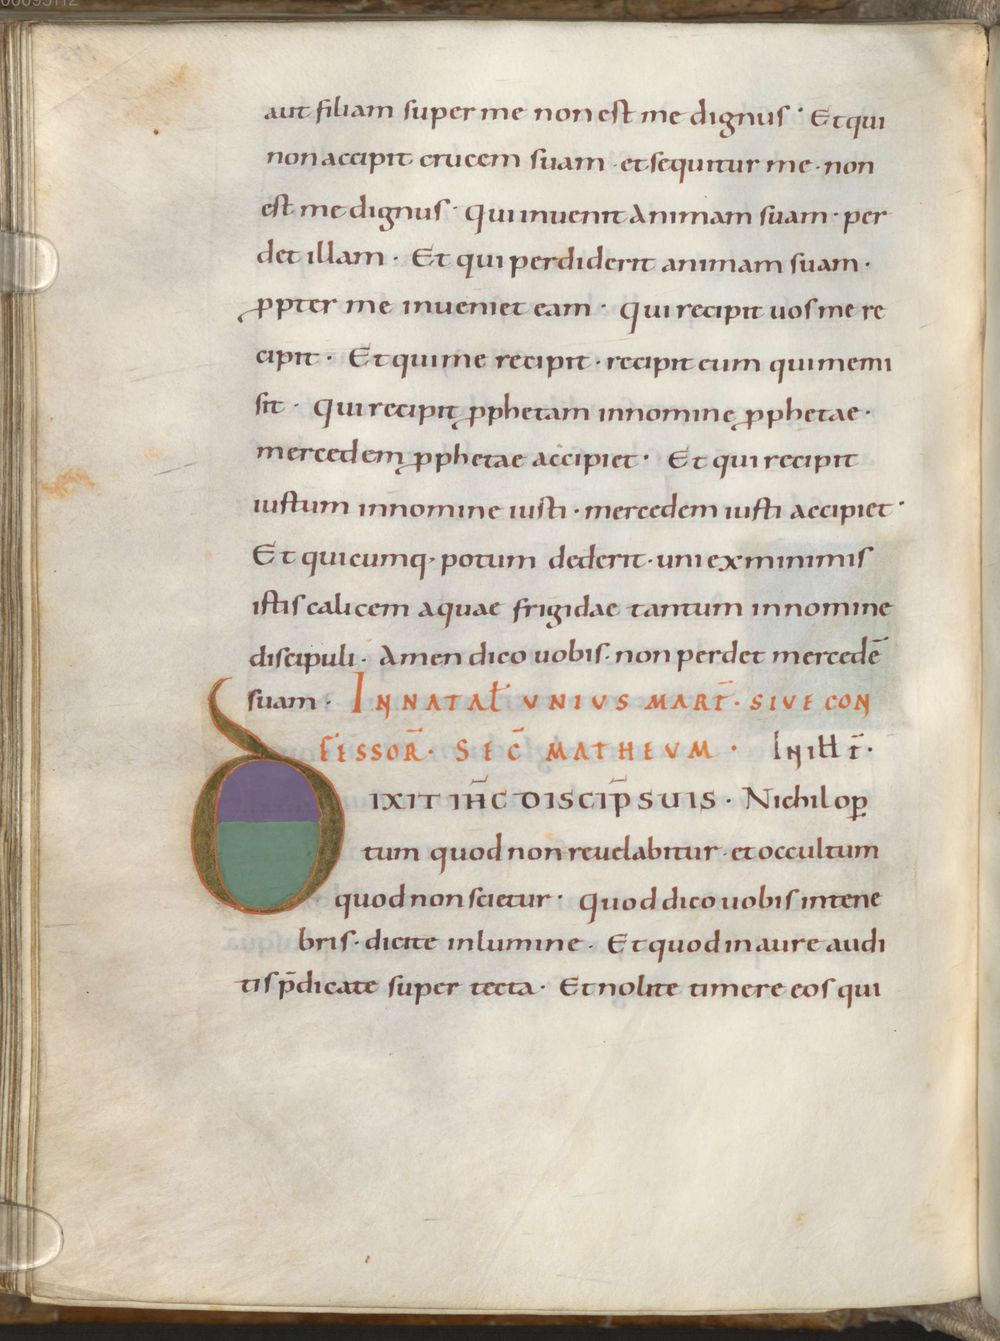 aut filiam super me non est me dignus · Et qui
non accipit crucem suam · et sequitur me · non
est me dignus · Qui invenit animam suam · per
det illam · Et qui perdiderit animam suam ·
ꝓpter me inveniet eam · Qui recipit uos me re
cipit · Et qui me recipit · recipit eum qui me mi
sit · Qui recipit ꝓphetam in nomine ꝓphetae ·
mercedem ꝓphetae accipiet · Et qui recipit
iustum in nomine iusti · mercedem iusti accipiet ·
Et quicumq· potum dederit · uni ex minimis
istis calicem aquae frigidae tantum in nomine
discipuli · Amen dico uobis · non perdet mercedē
suam · IN NATAƚ UNIUS MART̄ · SIVE CON
FESSOR̄ · SEC̄ MATHEUM · In illt̄ ·
DIXIT IH̄C DISCIP̄ SUIS · Nichil oꝑ
tum quod non reuelabitur · et occultum
quod non scietur · Quod dico uobis in tene
bris · dicite in lumine · Et quod in aure audi
tis p̄dicate super tecta · Et nolite timere eos qui